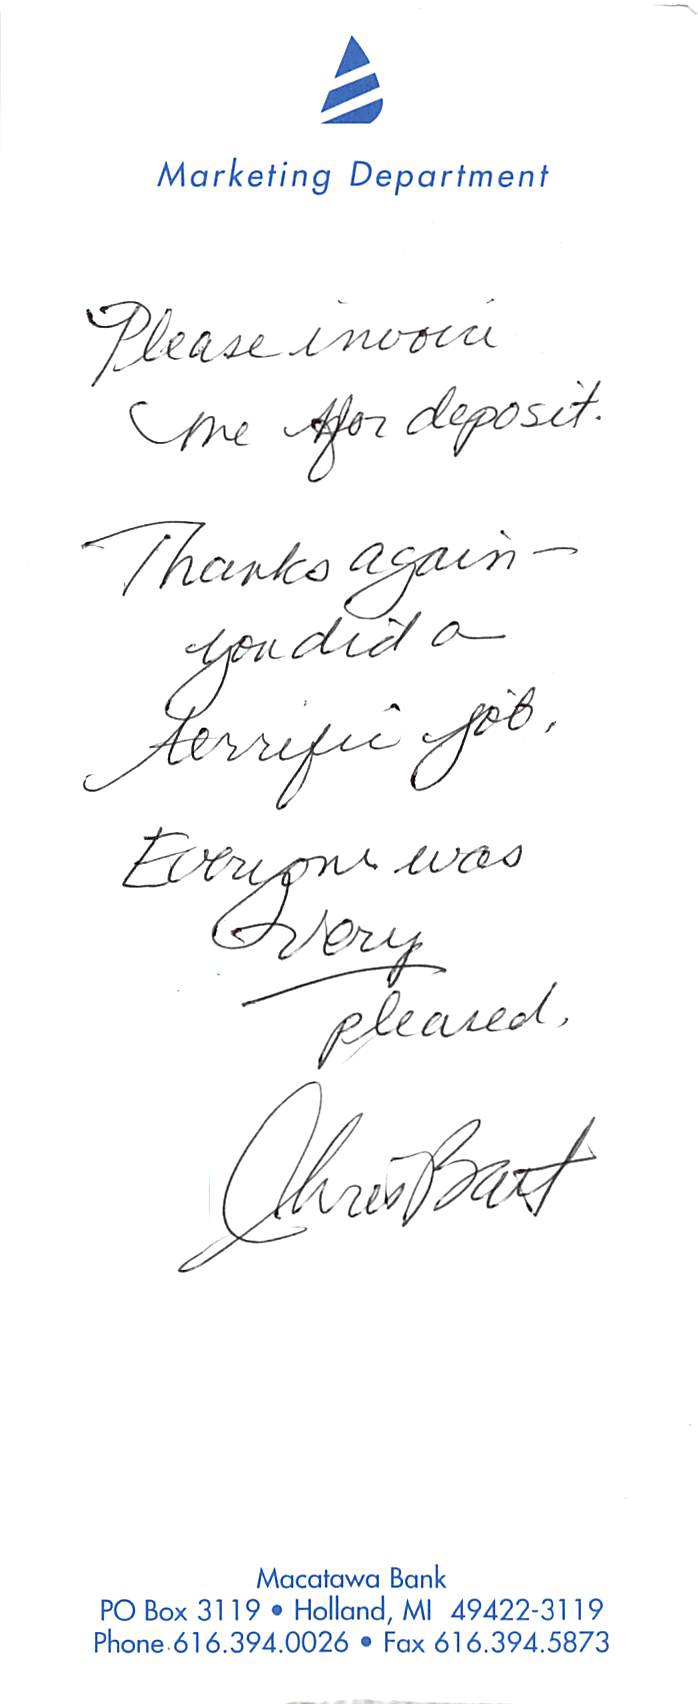 Marketing Department
Please invoice
me for deposit.
Thanks again –
you did a
terrific job.
Everyone was
very
pleased.
Chris Bart
Macatawa Bank
PO Box 3119 • Holland, MI 49422-3119
Phone 616.394.0026 • Fax 616.394.5873